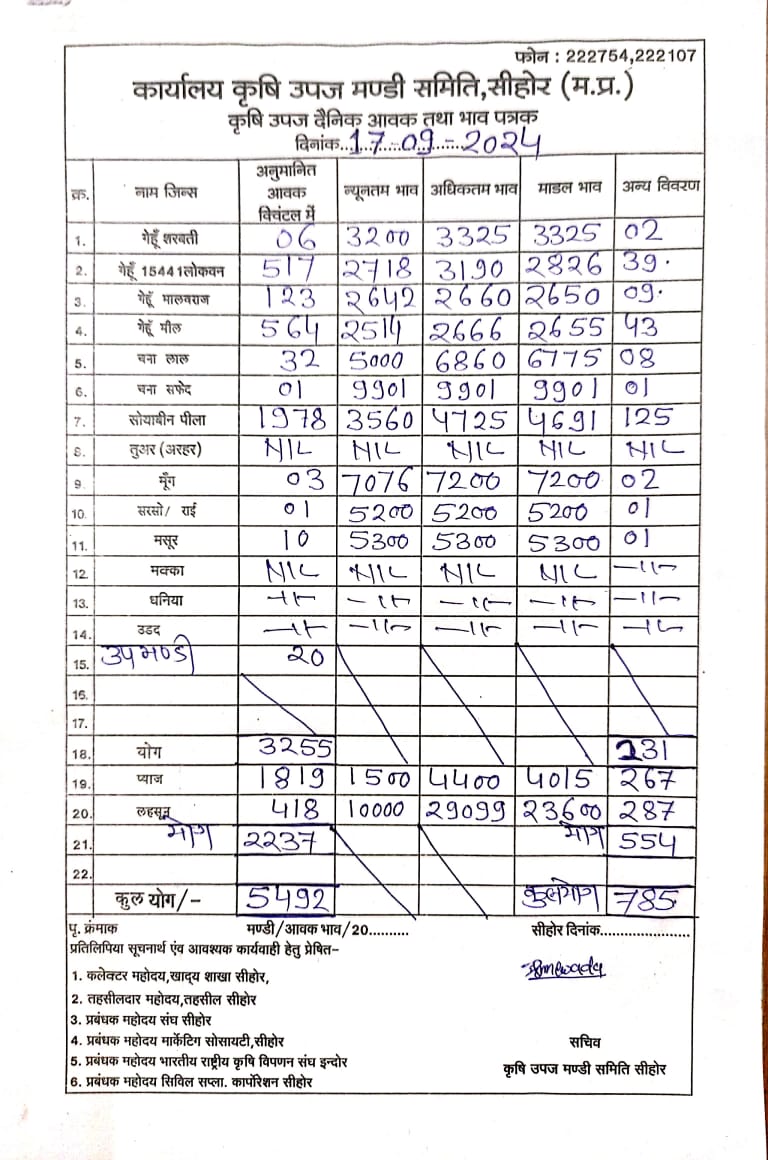 फोन : 222754,222107
कार्यालय कृषि उपज मण्डी समिति,सीहोर (म.प्र.)
कृषि उपज दैनिक आवक तथा भाव पत्रक
दिनांक..17-09-2024
क्र. नाम जिन्स अनुमानित आवक क्विंटल में न्यूनतम भाव अधिकतम भाव माडल भाव अन्य विवरण
1. गेहूँ शरबती 06 3200 3325 3325 02
2. गेहूँ 15441लोकवन 517 2718 3190 2826 39.
3. गेहूँ मालवराज 123 2642 2660 2650 09.
4. गेहूँ मील 564 2514 2666 2655 43
5. चना लाल 32 5000 6860 6775 08
6. चना सफेद 01 9901 9901 9901 01
7. सोयाबीन पीला 1978 3560 4725 4691 125
8. तुअर (अरहर) NIL NIL NIL NIL NIL
9. मूँग 03 7076 7200 7200 02
10. सरसो/ राई 01 5200 5200 5200 01
11. मसूर 10 5300 5300 5300 01
12. मक्का NIL NIL NIL NIL -11-
13. धनिया -11- -11- -11- -11- -11-
14. उडद -11- -11- -11- -11- -11-
15. उपमण्डी 20
16.
17.
18. योग 3255 231
19. प्याज 1819 1500 4400 4015 267
20. लहसून 418 10000 29099 23600 287
21. योग 2237 योग 554
22.
कुल योग/- 5492 कुलयोग 785
पृ. क्रंमाक मण्डी/आवक भाव/20.......... सीहोर दिनांक......................
प्रतिलिपिया सूचनार्थ एंव आवश्यक कार्यवाही हेतु प्रेषित-
1. कलेक्टर महोदय,खाद्य शाखा सीहोर,
2. तहसीलदार महोदय,तहसील सीहोर
3. प्रबंधक महोदय संघ सीहोर
4. प्रबंधक महोदय मार्केटिग सोसायटी,सीहोर
सचिव
5. प्रबंधक महोदय भारतीय राष्ट्रीय कृषि विपणन संघ इन्दोर
कृषि उपज मण्डी समिति सीहोर
6. प्रबंधक महोदय सिविल सप्ला. कार्पोरेशन सीहोर